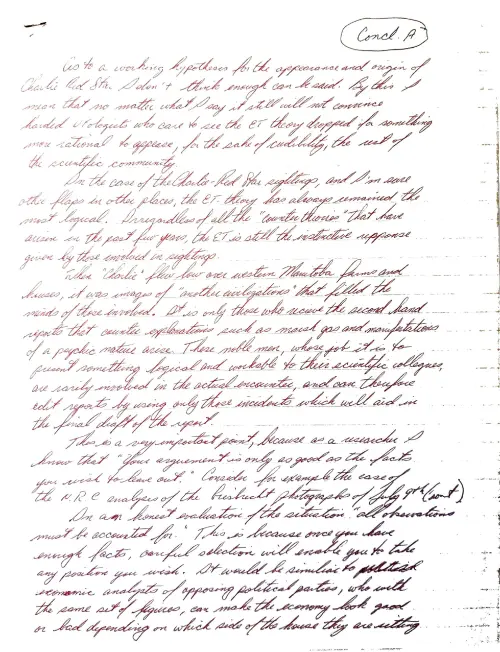 Concl. A
As to a working hypotheses for the appearance and origin of
Charlie Red Star I don't think enough can be said. By this I
mean that no matter what I say it still will not convince
harded Ufologists who care to see the ET theory dropped for something
more rational to appease, for the sake of credibility, the rest of
the scientific community.
In the case of the Charlie-Red Star sightings, and I'm sure
other flaps in other places, the ET theory has always remained, the
most logical. Irregardless of all the "counter theories" that have
arisen in the past few years, the ET is still the instinctive response
given by those involved in sightings.
When "Charlie" flew low over western Manitoba farms and
houses, it was images of "another civilizations" that filled the
minds of those involved. It is only those who receive the second hand
reports that counter explorations such as marsh gas and manifestations
of a psychic nature arise. These noble men, whose job it is to
present something logical and workable to their scientific colleagues,
are rarily involved in the actual encounter, and can therefore
edit reports by using only those incidents which will aid in
the final draft of the report.
This is a very important point, because as a researcher I
know that "your arguement is only as good as the facts
you wish to leave out." Consider for example the case of
the N.R.C analyses of the photographs of July 9th (cont)
In an honest evaluation of the situation "all observations
must be accounted for." This is because once you have
enough facts, careful selection will enable you to take
any position you wish. It would be similiar to
economic analysts of opposing political parties, who with
the same set of figures, can make the economy look good
or bad depending on which side of the house they are sitting